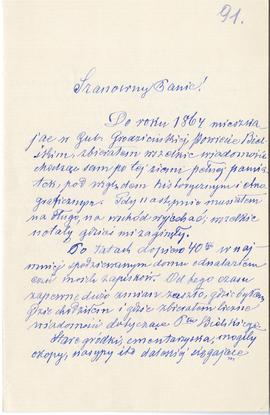 91.
Szanowny Panie!
Do roku 1864 mieszka
jąc w Gub. Grodzieńskiej Powiecie Biel
skim, zbierałem wszelkie wiadomości
chodząc sam po tej ziemi pełnej pamią
tek, pod względem historycznym i etno
graficznym. Gdy następnie musiałem
na długo, na wschód wyjechać, wszelkie
notaty gdzieś mi zaginęły.
Po latach dopiero 40tu w naj
mniej spodziewanym domu odnalazłem
część moich zapisków. Od tego czasu
zapewne dużo zmian zaszło, gdzie byłem
gdzie chodziłem i gdzie zbierałem liczne
wiadomości dotyczące Ptu Bielskiego.
Stare gródki, cmentarzyska, mogiły
kopy, nasypy itd dalekiej sięgające